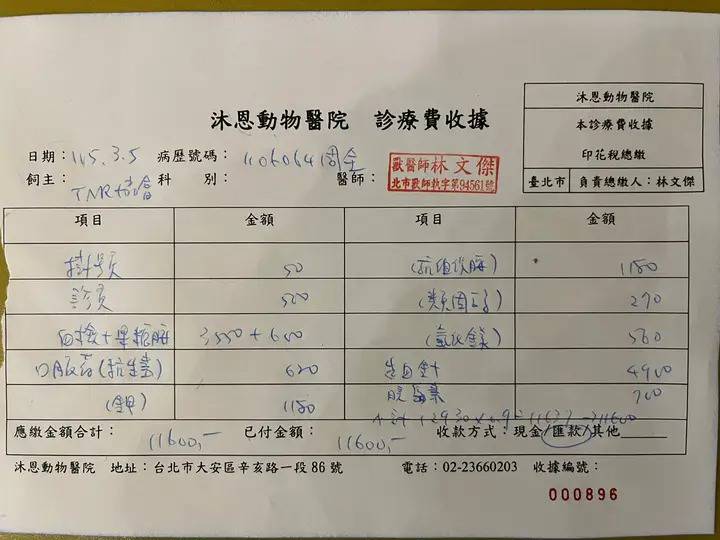 沐恩動物醫院 診療費收據
沐恩動物醫院
本診療費收據
印花稅總繳
臺北市 負責總繳人:林文傑
日期:115.3.5 病歷號碼:1106064
飼主:TNR協會 科 別: 醫師:獸醫師林文傑
北市獸師執字第94561號
項目 金額 項目 金額
掛號費 50 1150
診費 500 270
3550+600 (氧化鎂) 560
口服藥(抗生素) 600 4900
(鉀) 1150 700
12930×0.9=11637→11600
應繳金額合計:11600,- 已付金額:11600,- 收款方式:現金/匯款/其他
沐恩動物醫院 地址:台北市大安區辛亥路一段86號 電話:02-23660203 收據編號:
000896